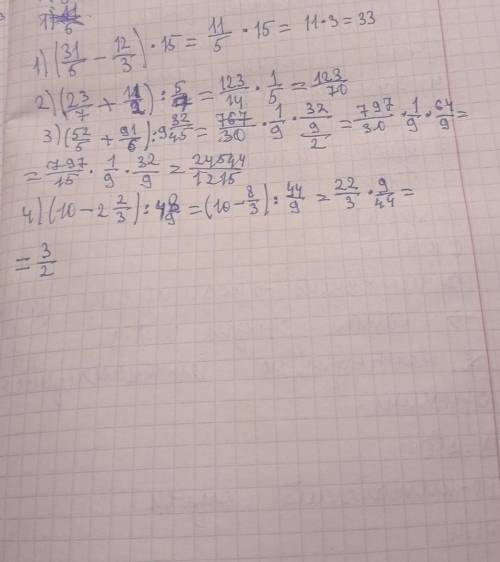 1) (31/5 − 12/3) · 15 = 11/5 · 15 = 11 · 3 = 33
2) (23/7 + 11/2) : 5 = 123/14 · 1/5 = 123/70
3) (52/5 + 91/6) : 9 32/45 = 767/30 · 1/9 · 32/(9/2) = 797/30 · 1/9 · 64/9 =
= 797/15 · 1/9 · 32/9 = 24544/1215
4) (10 − 2 2/3) : 4 8/9 = (10 − 8/3) : 44/9 = 22/3 · 9/44 =
= 3/2